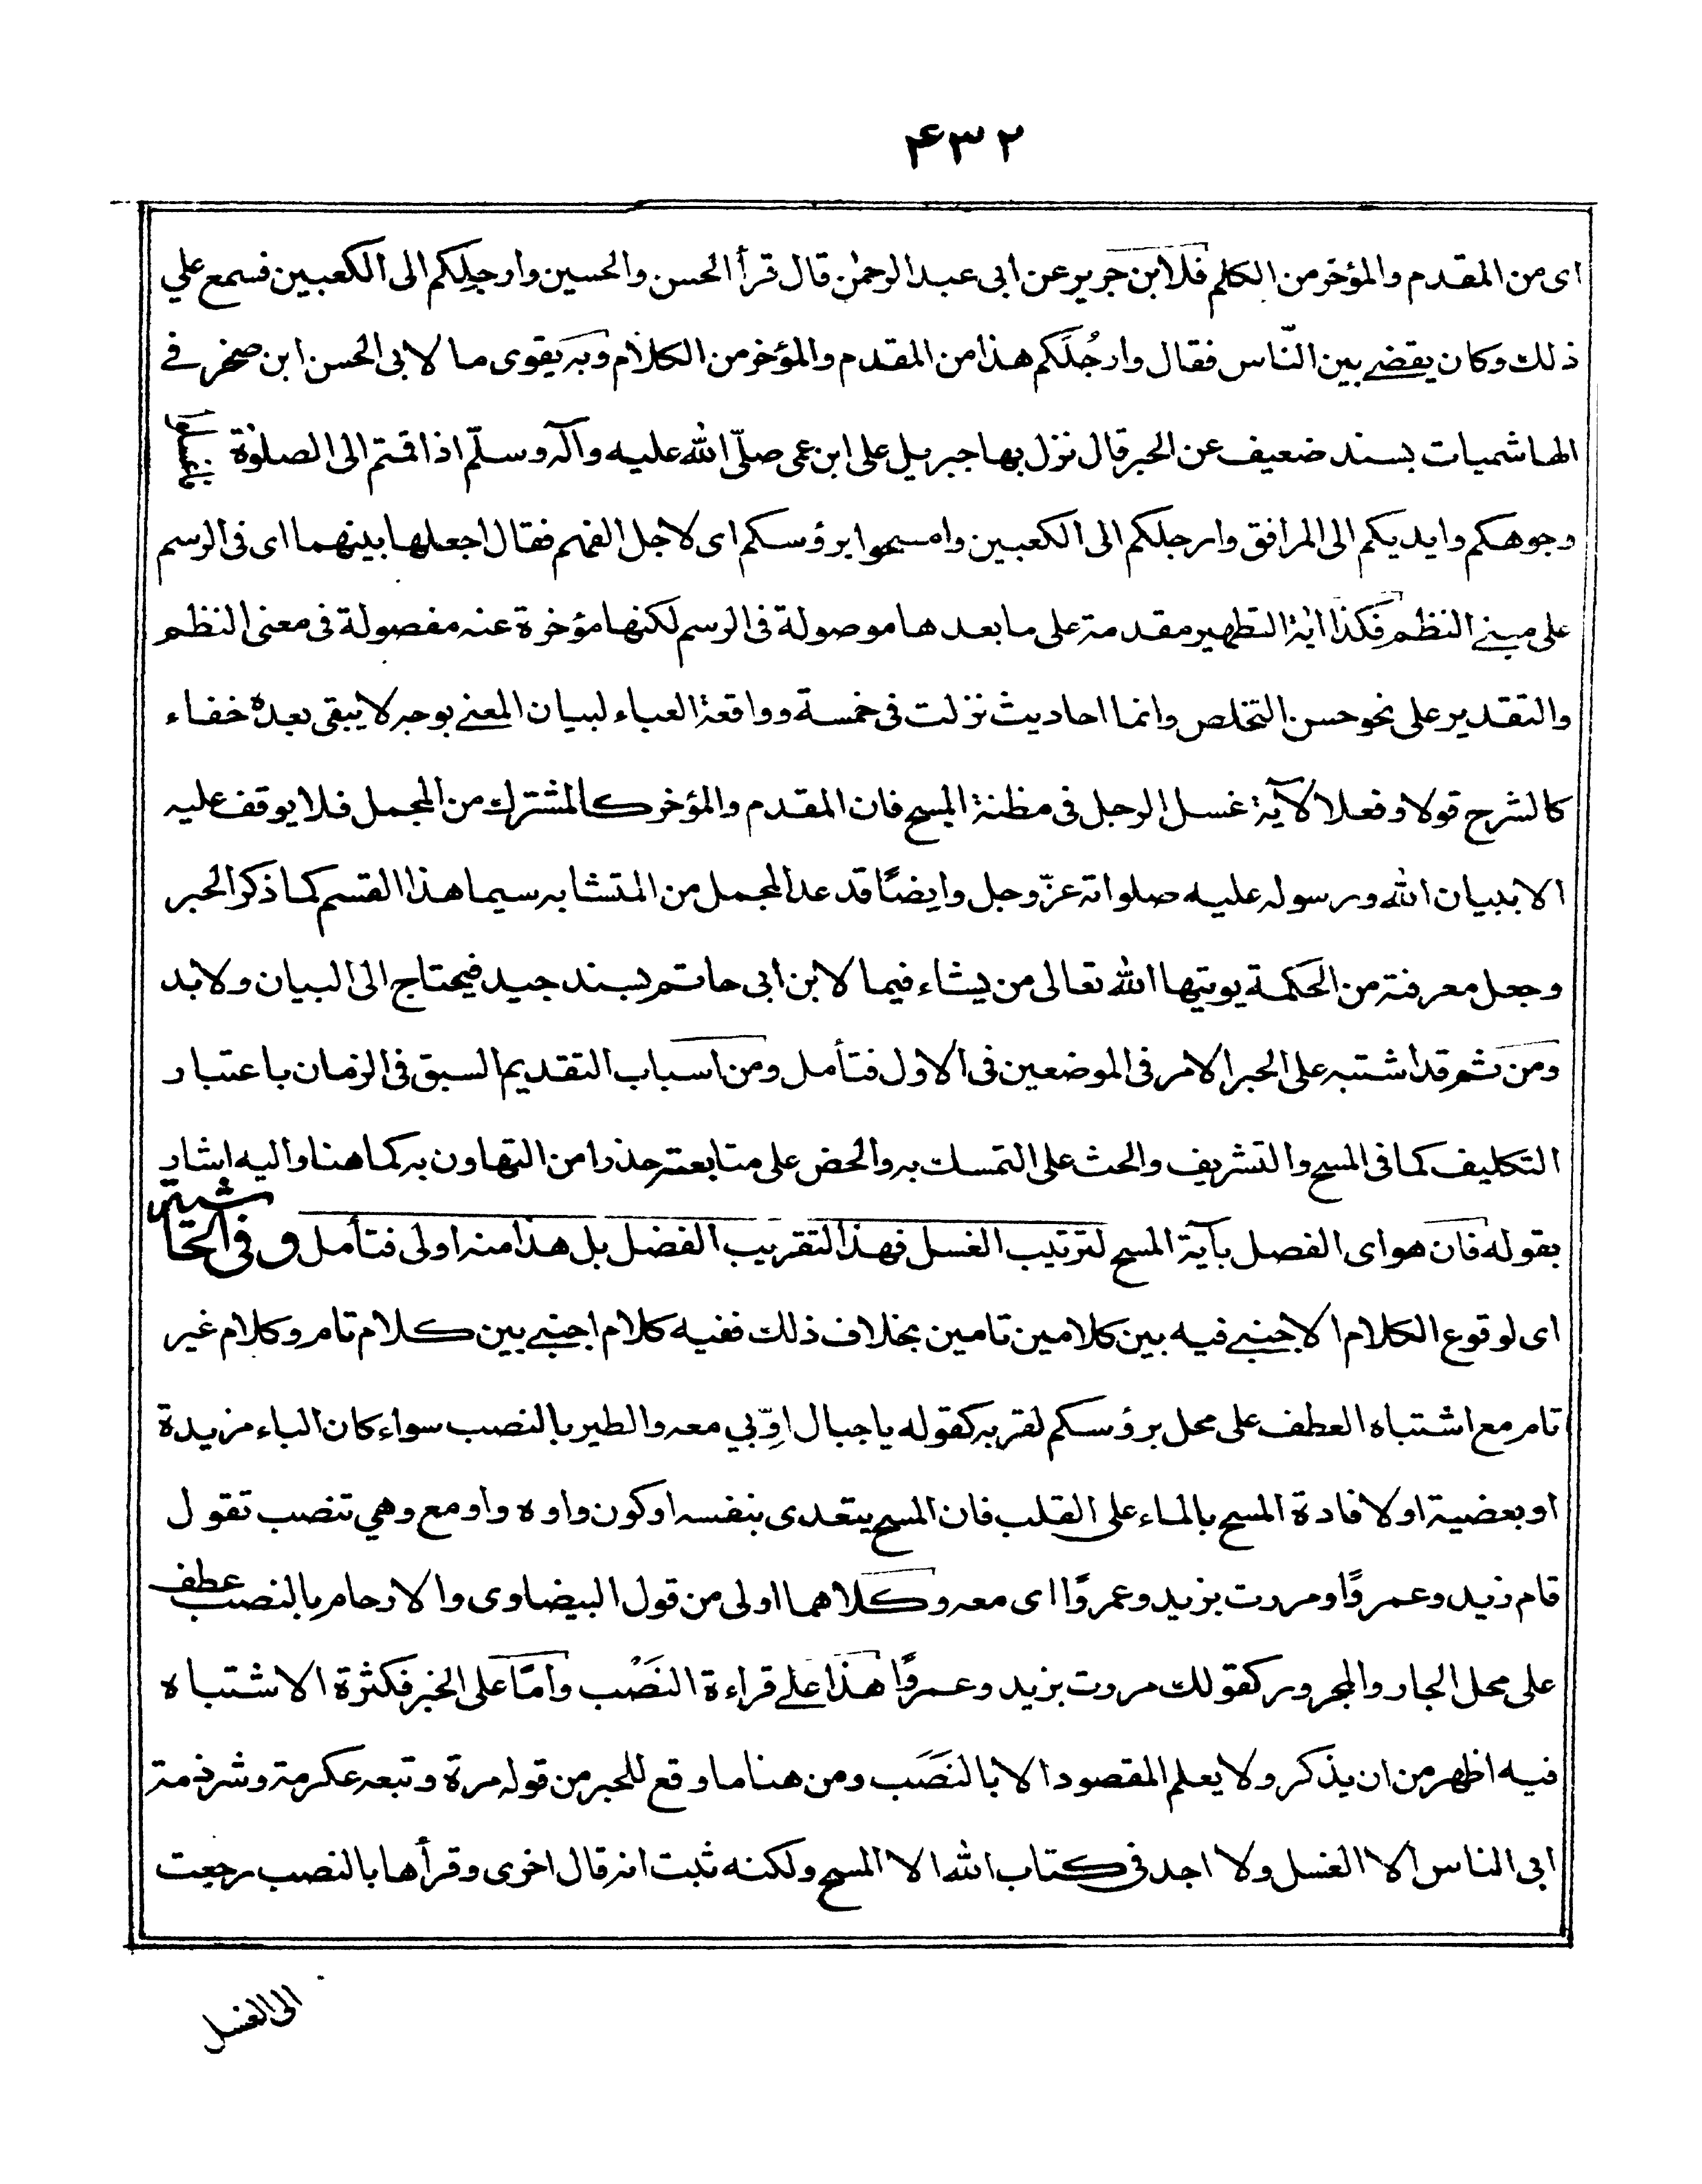 ۴۳۲
ای من المقدم والمؤخر من الکلم فلابن جریر عن ابی عبد الرحمٰن قال قرأ الحسن والحسین وارجلِکم الی الکعبین فسمع علي
ذلك وکان یقضے بین النّاس فقال وارجُلَکم هذا من المقدم والمؤخر من الکلام وبه یقوی ما لابی الحسن ابن صخر فے
الهاشمیات بسند ضعیف عن الحبر قال نزل بها جبریل علی ابن عمی صلّی الله علیه وآله وسلّم اذا قمتم الی الصلوٰة فاغسلوا
وجوهکم وایدیکم الی المرافق وارجلکم الی الکعبین وامسحوا برؤسکم ای لاجل الفهم فقال اجعلها بینهما ای فی الرسم
علی مبنے النظم فکذا ایة التطهیر مقدمة علی ما بعدها موصولة فی الرسم لکنها مؤخرة عنه مفصولة فی معنی النظم
والتقدیر علی نحو حسن التخلص وانما احادیث نزلت فی خمسة وواقعة العباء لبیان المعنے بوجه لا یبقی بعده خفاء
کالشرح قولا وفعلا لآیة غسل الرجل فی مظنة المسح فان المقدم والمؤخر کالمشترك من المجمل فلا یوقف علیه
الا ببیان الله ورسوله علیه صلواته عزّ وجل وایضًا قد عد المجمل من المتشابه سیما هذا القسم کما ذکر الحبر
وجعل معرفته من الحکمة یوتیها الله تعالی من یشاء فیما لابن ابی حاتم بسند جید فیحتاج الی البیان ولابد
ومن ثم قد اشتبه علی الحبر الامر فی الموضعین فی الاول فتأمل ومن اسباب التقدیم السبق فی الزمان باعتبار
التکلیف کما فی المسح والتشریف والحث علی التمسك به والحض علی متابعته حذرا من التهاون به کما هنا والیه اشار
بقوله فان هو ای الفصل بآیة المسح لترتیب الغسل فهذا التقریب الفضل بل هذا منه اولی فتأمل وفی الحاشیة
ای لوقوع الکلام الاجنبے فیه بین کلامین تامین بخلاف ذلك ففیه کلام اجنبے بین کلام تام وکلام غیر
تام مع اشتباه العطف علی محل برؤسکم لقربه کقوله یا جبال اوّبي معه والطیر بالنصب سواء کان الباء مزیدة
او بعضیة او لافادة المسح بالماء علی القلب فان المسح یتعدی بنفسه او کون واوه واو مع وهي تنصب تقول
قام زید وعمروًا ومررت بزید وعمروًا ای معه وکلاهما اولی من قول البیضاوی والارحام بالنصب عطف
علی محل الجار والمجرور کقولك مررت بزید وعمروًا هذا علے قراءة النَصْب وامّا علی الخبر فکثرة الاشتباه
فیه اظهر من ان یذکر ولا یعلم المقصود الا بالنَصَب ومن هنا ما وقع للحبر من قوله مرة وتبعه عکرمة وشرذمة
ابی الناس الا الغسل ولا اجد فی کتاب الله الا المسح ولکنه ثبت انه قال اخری وقرأها بالنصب رجعت
الی الغسل